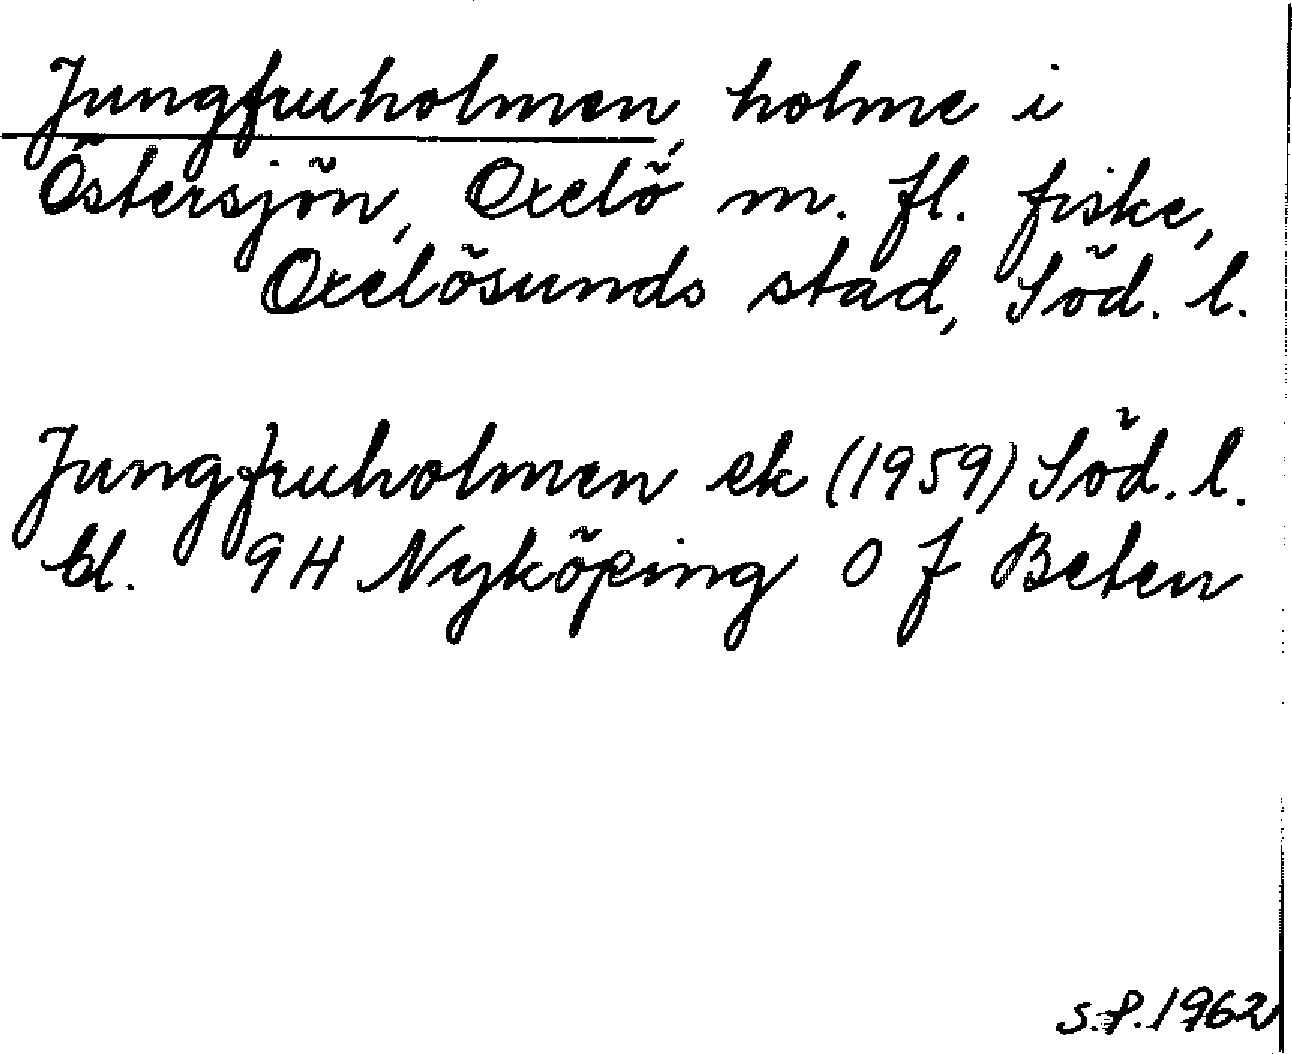 Jungfruholmen, holme i
Östersjön, Oxelö m. fl. fiske,
Oxelösunds stad, Söd. l.
Jungfruholmen ek (1959) Söd. l.
bl. 9H Nyköping O f Beten
S.P. 1962